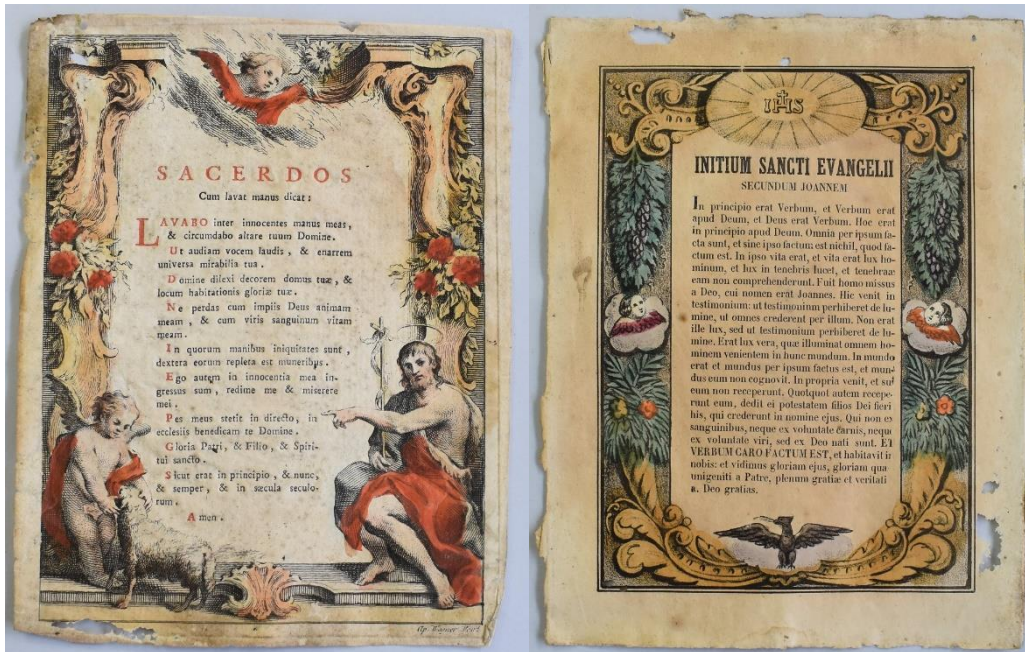 SACERDOS
Cum lavat manus dicat:
LAVABO inter innocentes manus meas,
& circumdabo altare tuum Domine.
Ut audiam vocem laudis, & enarrem
universa mirabilia tua.
Domine dilexi decorem domus tuæ, &
locum habitationis gloriæ tuæ.
Ne perdas cum impiis Deus animam
meam, & cum viris sanguinum vitam
meam.
In quorum manibus iniquitates sunt,
dextera eorum repleta est muneribus.
Ego autem in innocentia mea in-
gressus sum, redime me & miserere
mei.
Pes meus stetit in directo, in
ecclesiis benedicam te Domine.
Gloria Patri, & Filio, & Spiri-
tui sancto.
Sicut erat in principio, & nunc,
& semper, & in sæcula seculo-
rum.
Amen.
IHS
INITIUM SANCTI EVANGELII
SECUNDUM JOANNEM
In principio erat Verbum, et Verbum erat
apud Deum, et Deus erat Verbum. Hoc erat
in principio apud Deum. Omnia per ipsum fa-
cta sunt, et sine ipso factum est nichil, quod fa-
ctum est. In ipso vita erat, et vita erat lux ho-
minum, et lux in tenebris lucet, et tenebræ
eam non comprehenderunt. Fuit homo missus
a Deo, cui nomen erat Joannes. Hic venit in
testimonium: ut testimonium perhiberet de lu-
mine, ut omnes crederent per illum. Non erat
ille lux, sed ut testimonium perhiberet de lu-
mine. Erat lux vera, quæ illuminat omnem ho-
minem venientem in hunc mundum. In mundo
erat et mundus per ipsum factus est, et mun-
dus eum non cognovit. In propria venit, et sui
eum non receperunt. Quotquot autem recepe-
runt eum, dedit ei potestatem filios Dei fieri
his, qui crederunt in nomine ejus. Qui non ex
sanguinibus, neque ex voluntate carnis, neque
ex voluntate viri, sed ex Deo nati sunt. ET
VERBUM CARO FACTUM EST, et habitavit in
nobis: et vidimus gloriam ejus, gloriam qua
unigeniti a Patre, plenum gratiæ et veritati
s. Deo gratias.